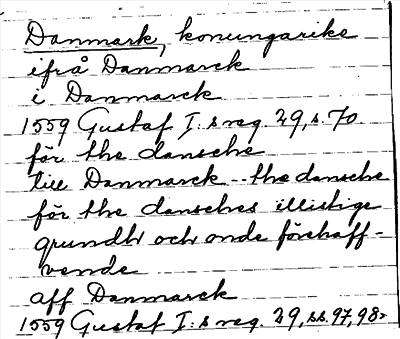 Danmark, konungarike
ifrå Danmarck
i Danmarck
1559 Gustaf I:s reg. 29, s. 70
för the dansche
till Danmarck - the dansche
för the dansches illistige
grundh och onde förehaff-
vende
aff Danmarck
1559 Gustaf I:s reg. 29, ss. 97, 98